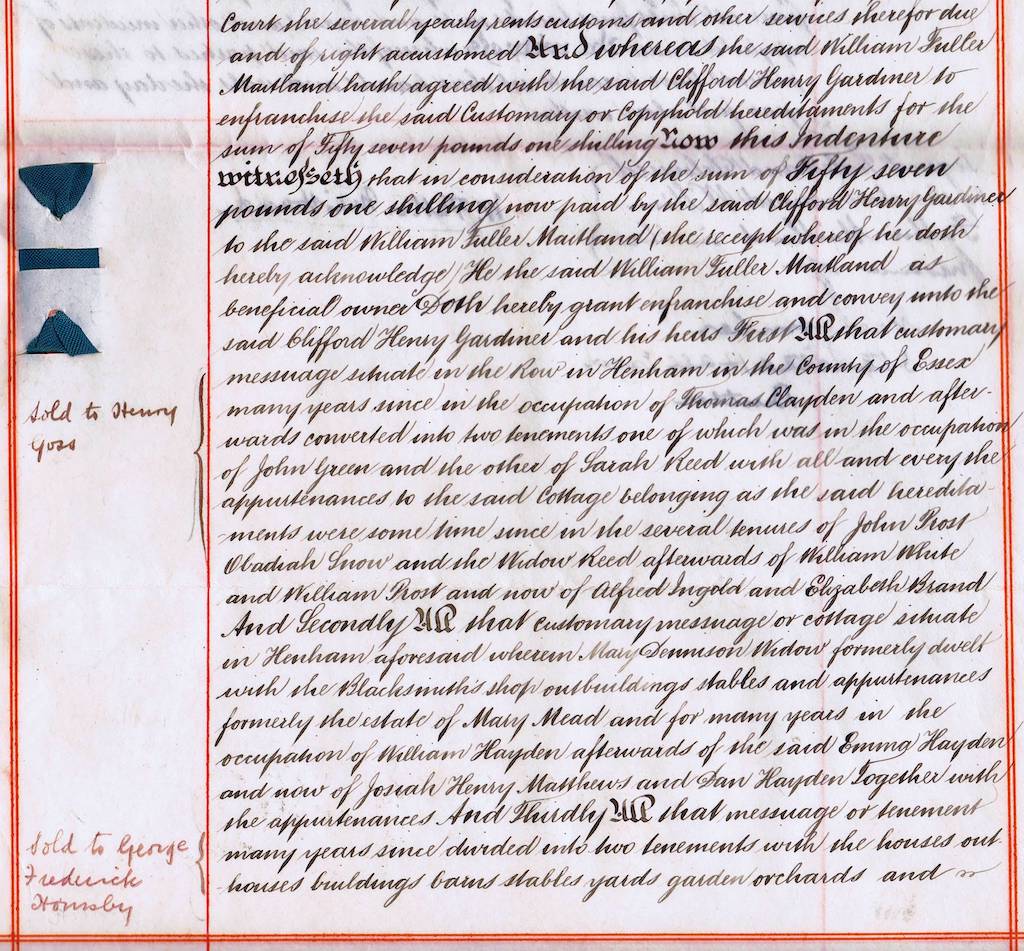 Court the several yearly rents customs and other services therefor due
and of right accustomed And whereas the said William Fuller
Maitland hath agreed with the said Clifford Henry Gardiner to
enfranchise the said Customary or Copyhold hereditaments for the
sum of Fifty seven pounds one shilling Now this Indenture
witnesseth that in consideration of the sum of Fifty seven
pounds one shilling now paid by the said Clifford Henry Gardiner
to the said William Fuller Maitland (the receipt whereof he doth
hereby acknowledge) He the said William Fuller Maitland as
beneficial owner Doth hereby grant enfranchise and convey unto the
said Clifford Henry Gardiner and his heirs First All that customary
messuage situate in the Row in Henham in the County of Essex
many years since in the occupation of Thomas Clayden and after-
Sold to Henry
Goss
wards converted into two tenements one of which was in the occupation
of John Green and the other of Sarah Reed with all and every the
appurtenances to the said Cottage belonging as the said heredita-
-ments were some time since in the several tenures of John Prost
Obadiah Snow and the Widow Reed afterwards of William White
and William Prost and now of Alfred Ingold and Elizabeth Brand
And Secondly All that customary messuage or cottage situate
in Henham aforesaid wherein Mary Dennison Widow formerly dwelt
with the Blacksmith's shop outbuildings stables and appurtenances
formerly the estate of Mary Mead and for many years in the
occupation of William Hayden afterwards of the said Emma Hayden
and now of Josiah Henry Matthews and Dan Hayden Together with
the appurtenances And Thirdly All that messuage or tenement
many years since divided into two tenements with the houses out-
-houses buildings barns stables yards garden orchards and
Sold to George
Frederick
Hornsby